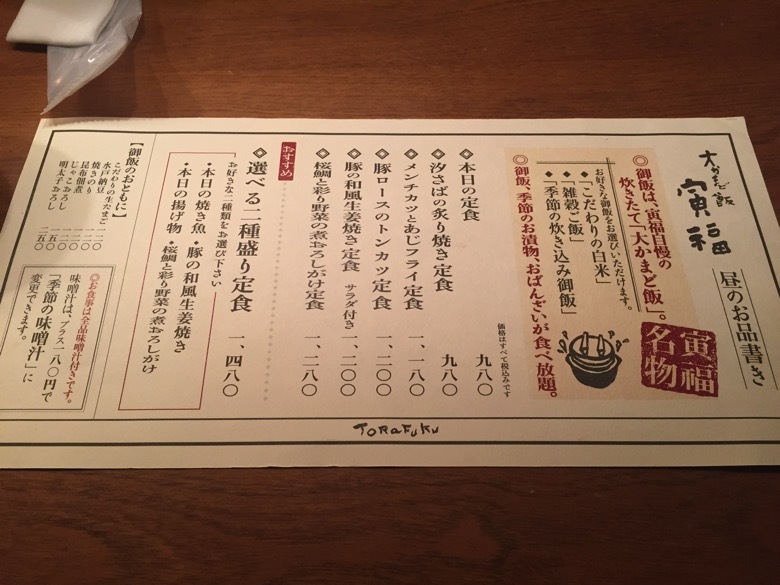 大かまど飯
寅福
昼のお品書き
◎御飯は、寅福自慢の
炊きたて「大かまど飯」。
お好きな御飯をお選びいただけます。
◆「こだわりの白米」
◆「雑穀ご飯」
◆「季節の炊き込み御飯」
寅福
名物
◎御飯、季節のお漬物、おばんざいが食べ放題。
価格はすべて税込みです
◇本日の定食 九八〇
◇汐さばの炙り焼き定食 九八〇
◇メンチカツとあじフライ定食 一、一八〇
◇豚ロースのトンカツ定食 一、二〇〇
◇豚の和風生姜焼き定食 サラダ付き 一、二〇〇
◇桜鯛と彩り野菜の煮おろしがけ定食 一、二八〇
おすすめ
◇選べる二種盛り定食 一、四八〇
お好きな二種類をお選び下さい
・本日の焼き魚 ・豚の和風生姜焼き
・本日の揚げ物 ・桜鯛と彩り野菜の煮おろしがけ
【御飯のおともに】
こだわりの生たまご 一〇〇
水戸納豆 一二〇
焼きのり
昆布佃煮
じゃこおろし 二五〇
明太子おろし 二五〇
◎お食事は全品味噌汁付きです。
味噌汁は、プラス一八〇円で
「季節の味噌汁」に
変更できます。
TORAFUKU